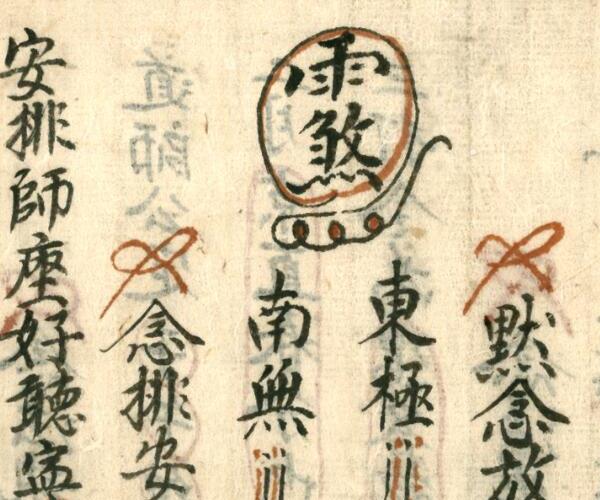 默念放
東極
雨煞
南無
念排安
安排師座好聽